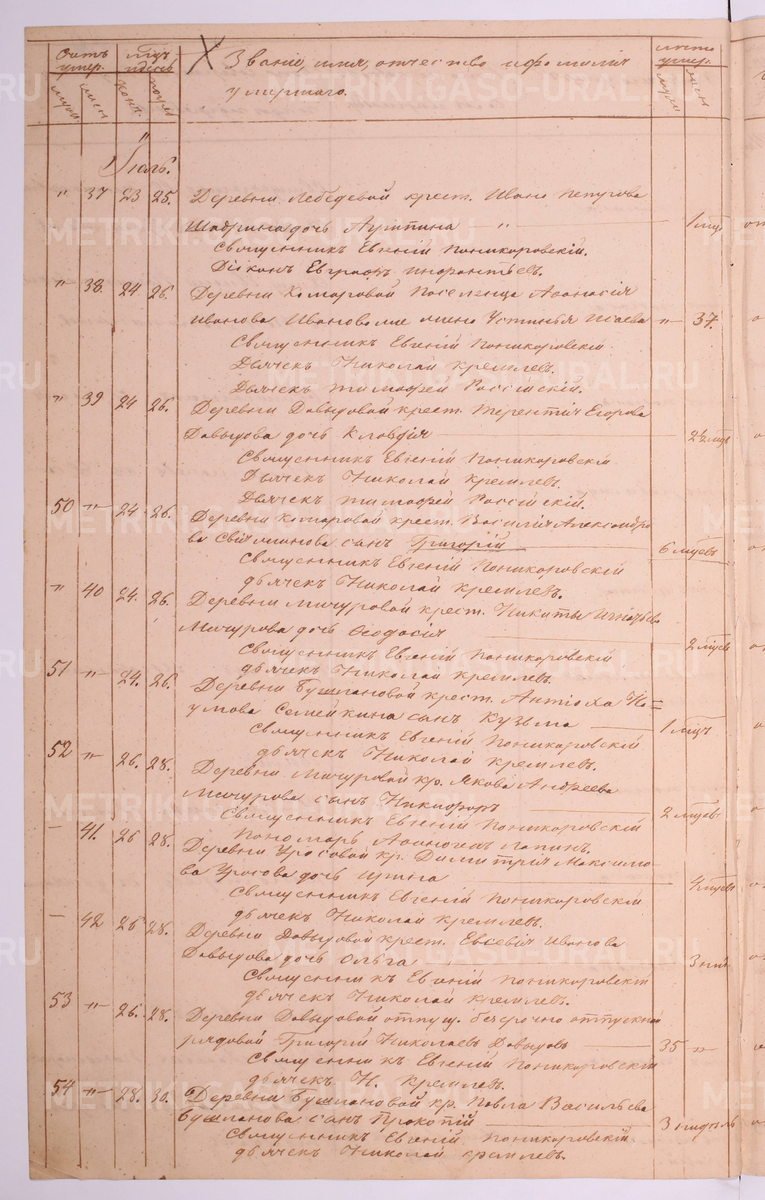 Счетъ умер. Мѣс. и день Званіе, имя, отчество и фамилія Лѣта умер.
умершаго.
Іюль.
" 37 23 25. Деревни Лебедевой крест. Ивана Петрова
Шадрина дочь " 1 мѣц
Священникъ Евгеній Поникоровскій.
Діаконъ Евграфъ
" 38. 24. 26. Деревни Комаровой Поселенца Аѳанасія
Иванова жена Устинья Исаева " 37.
Священникъ Евгеній Поникоровскій
Дьячекъ Николай Кремлевъ.
Дьячекъ Тимофей Россійскій.
" 39 24 26. Деревни Давыдовой крест. Терентія Егорова
Давыдова дочь Клавдія 2½ мѣц
Священникъ Евгеній Поникоровскій
Дьячекъ Николай Кремлевъ.
Дьячекъ Тимофей Россійскій.
50 " 24 26. Деревни Комаровой крест. Василія Александро
ва сынъ Григорій 6 мѣцевъ
Священникъ Евгеній Поникоровскій
дьячекъ Николай Кремлевъ.
" 40 24. 26. Деревни Мичуровой крест. Никиты Игнатьева
Мичурова дочь Ѳеодосія 2 мѣцевъ
Священникъ Евгеній Поникоровскій
дьячекъ Николай Кремлевъ.
51 " 24. 26. Деревни Бушлановой крест. Антіоха На=
умова Семейкина сынъ Кузьма 1 мѣцъ
Священникъ Евгеній Поникоровскій
дьячекъ Николай Кремлевъ.
52 " 26. 28. Деревни Мичуровой кр. Якова Андреева
Мичурова сынъ Никифоръ 2 мѣцевъ
Священникъ Евгеній Поникоровскій
Пономарь Аѳиногенъ Лапинъ.
— 41. 26 28. Деревни Уросовой кр. Димитрія Максимо-
ва Уросова дочь Ирина 4 мѣцевъ
Священникъ Евгеній Поникоровскій
дьячекъ Николай Кремлевъ.
— 42 26 28. Деревни Давыдовой крест. Евсевія Иванова
Давыдова дочь Ольга 3 нид
Священникъ Евгеній Поникоровскій
дьячекъ Николай Кремлевъ.
53 " 26. 28. Деревни Давыдовой отпущ. безсрочно отпускной
рядовой Григорій Николаевъ Давыдовъ 35 "
Священникъ Евгеній Поникоровскій
дьячекъ Н. Кремлевъ.
54 " 28. 30. Деревни Бушлановой кр. Павла Васильева
Бушланова сынъ Прокопій 3 нидѣль
Священникъ Евгеній Поникоровскій
дьячекъ Николай Кремлевъ.
METRIKI.GASO-URAL.RU